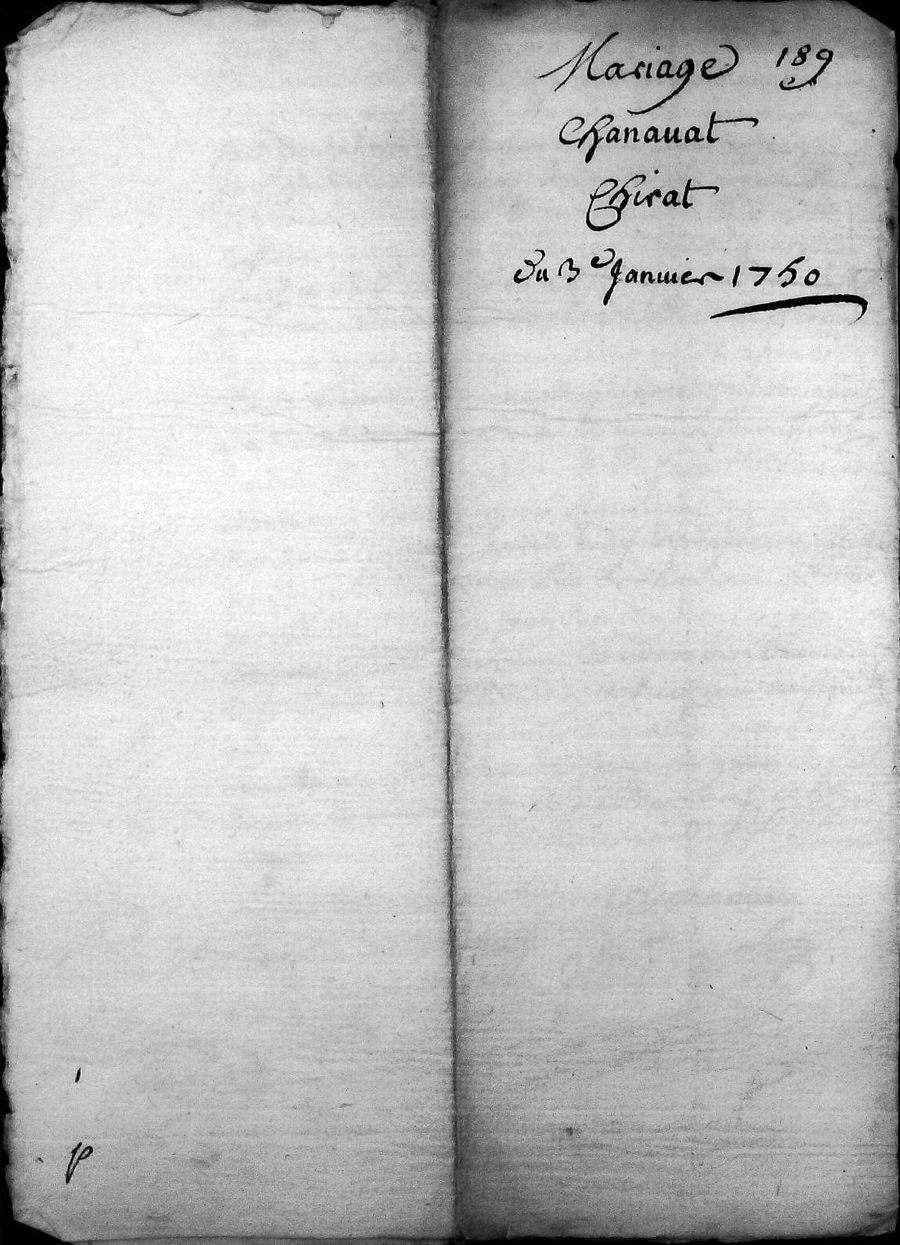 Mariage 189
Chanauat
Chirat
Du 3e Januier 1750